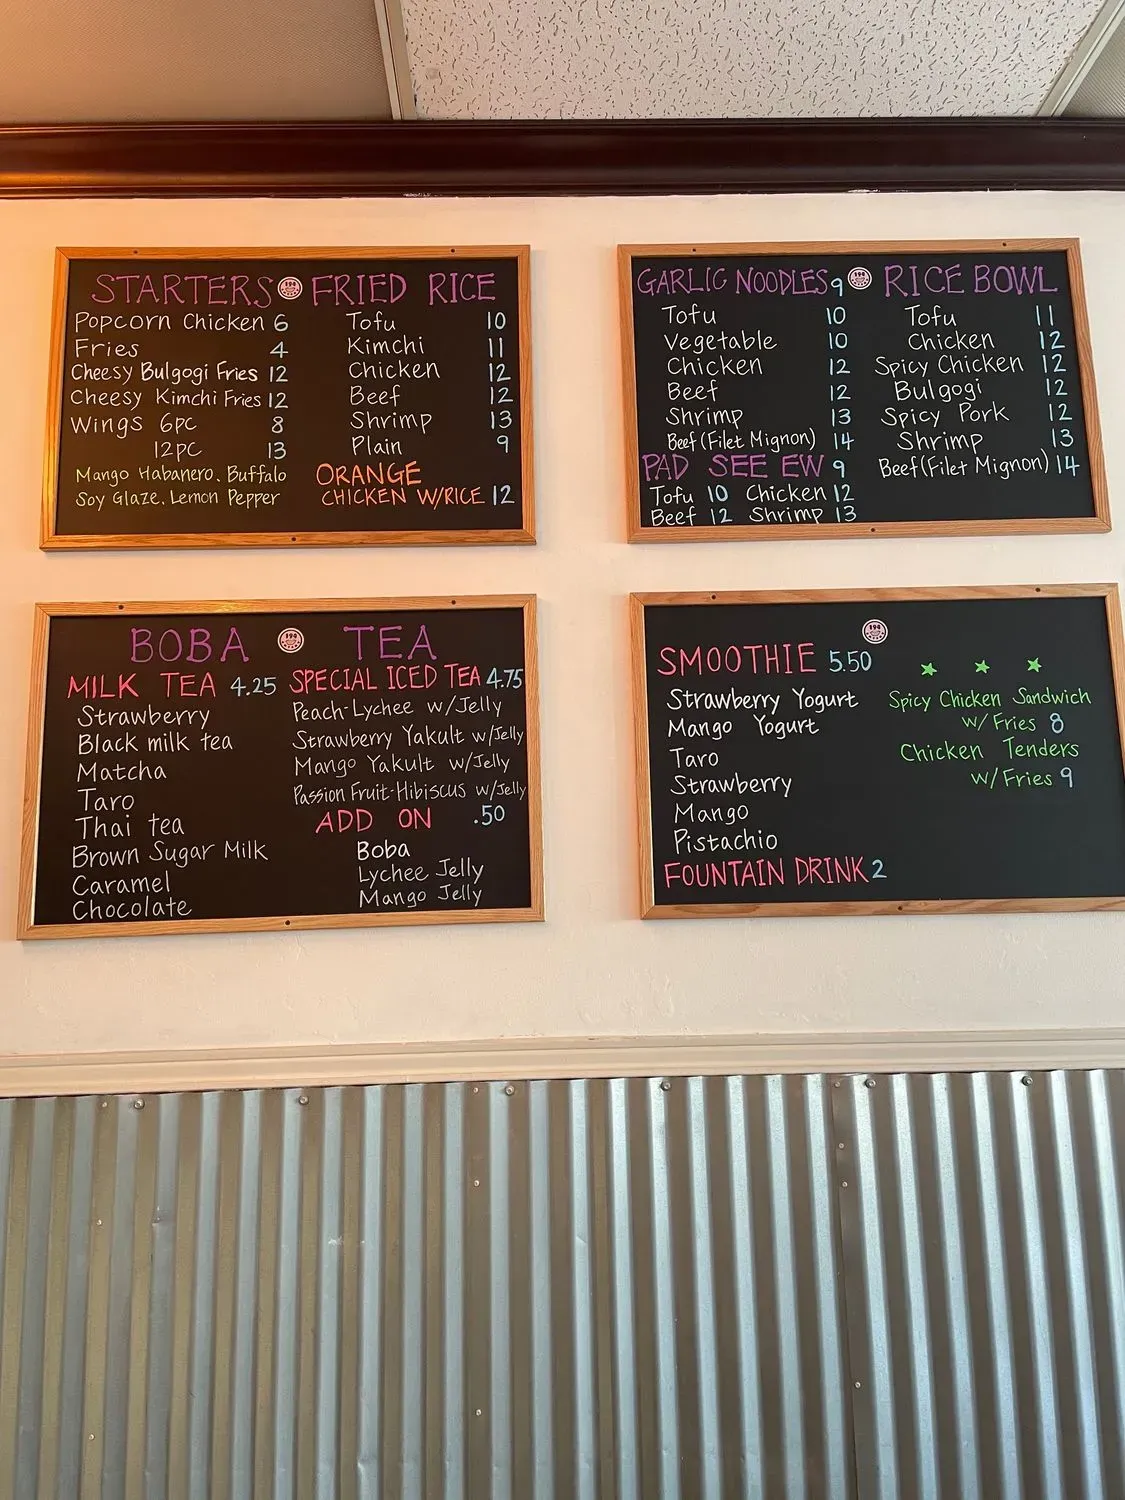 STARTERS
Popcorn Chicken 6
Fries 4
Cheesy Bulgogi Fries 12
Cheesy Kimchi Fries 12
Wings 6pc 8
12pc 13
Mango Habanero, Buffalo
Soy Glaze, Lemon Pepper
FRIED RICE
Tofu 10
Kimchi 11
Chicken 12
Beef 12
Shrimp 13
Plain 9
ORANGE
CHICKEN W/RICE 12
GARLIC NOODLES 9
Tofu 10
Vegetable 10
Chicken 12
Beef 12
Shrimp 13
Beef (Filet Mignon) 14
PAD SEE EW 9
Tofu 10 Chicken 12
Beef 12 Shrimp 13
RICE BOWL
Tofu 11
Chicken 12
Spicy Chicken 12
Bulgogi 12
Spicy Pork 12
Shrimp 13
Beef (Filet Mignon) 14
BOBA TEA
MILK TEA 4.25
Strawberry
Black milk tea
Matcha
Taro
Thai tea
Brown Sugar Milk
Caramel
Chocolate
SPECIAL ICED TEA 4.75
Peach-Lychee w/Jelly
Strawberry Yakult w/Jelly
Mango Yakult w/Jelly
Passion Fruit-Hibiscus w/Jelly
ADD ON .50
Boba
Lychee Jelly
Mango Jelly
SMOOTHIE 5.50
Strawberry Yogurt
Mango Yogurt
Taro
Strawberry
Mango
Pistachio
FOUNTAIN DRINK 2
Spicy Chicken Sandwich
w/ Fries 8
Chicken Tenders
w/Fries 9